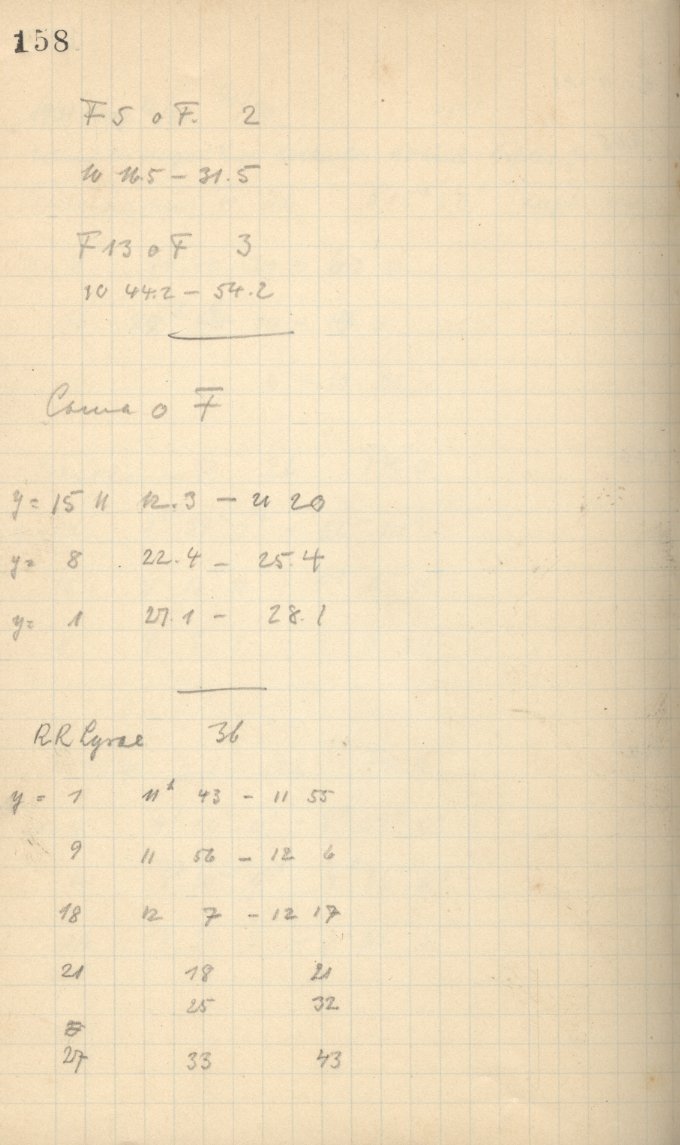 158
F 5 o F. 2
10 16.5 – 31.5
F 13 o F 3
10 44.2 – 54.2
Coma o F
y = 15 11 12.3 – 11 20
y = 8 22.4 – 25.4
y = 1 27.1 – 28.1
RR Lyrae 36
y = 1 11h 43 – 11 55
9 11 56 – 12 6
18 12 7 – 12 17
21 18 21
25 32
27 33 43